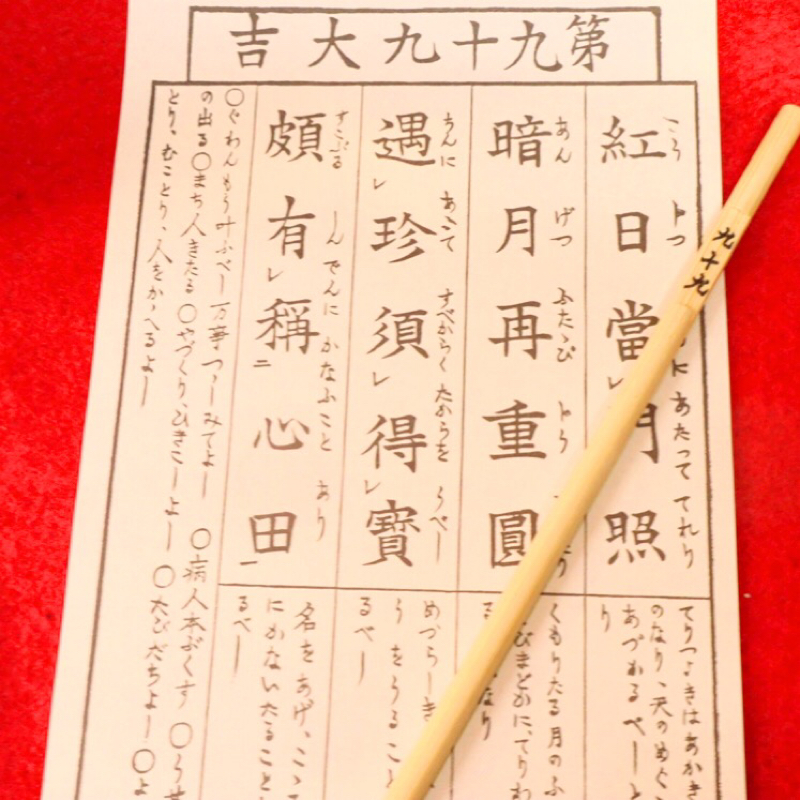 第九十九大吉
紅日當門照
こう じつ にあたって てれり
てりつよきはあかき
のなり、天のめぐ
あづかるべしと
り
暗月再重圓
あん げつ ふたゝび ぢう
くもりたる月のふ
びまどかに、てりわ
なり
遇珍須得寶
ちんに あふて すべからく たからを うべし
めづらしき
う をうること
るべし
頗有稱心田
すこぶる しんでんに かなふこと あり
名をあげ、こゝ
にかないたること
るべし
○ぐわんもう叶ふべし 万事つゝしみてよし ○病人本ぶくす ○う
の出る○まち人きたる ○やづくり、ひきこしよし ○たびだちよし ○よ
とり、むことり、人をかゝへるよし
九十九